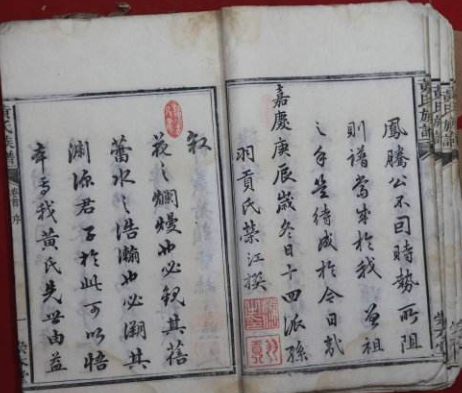 鳳騰公不因時勢所阻
則譜當成於我曾祖
之手豈待成於今日哉
嘉慶庚辰歲冬日十四派孫
羽貢氏榮江撰
叙
之爛熳也必観其
蓄水之浩瀚也必溯其
淵源君子於此可以悟
矣我黃氏先世由益
黃氏族譜
序